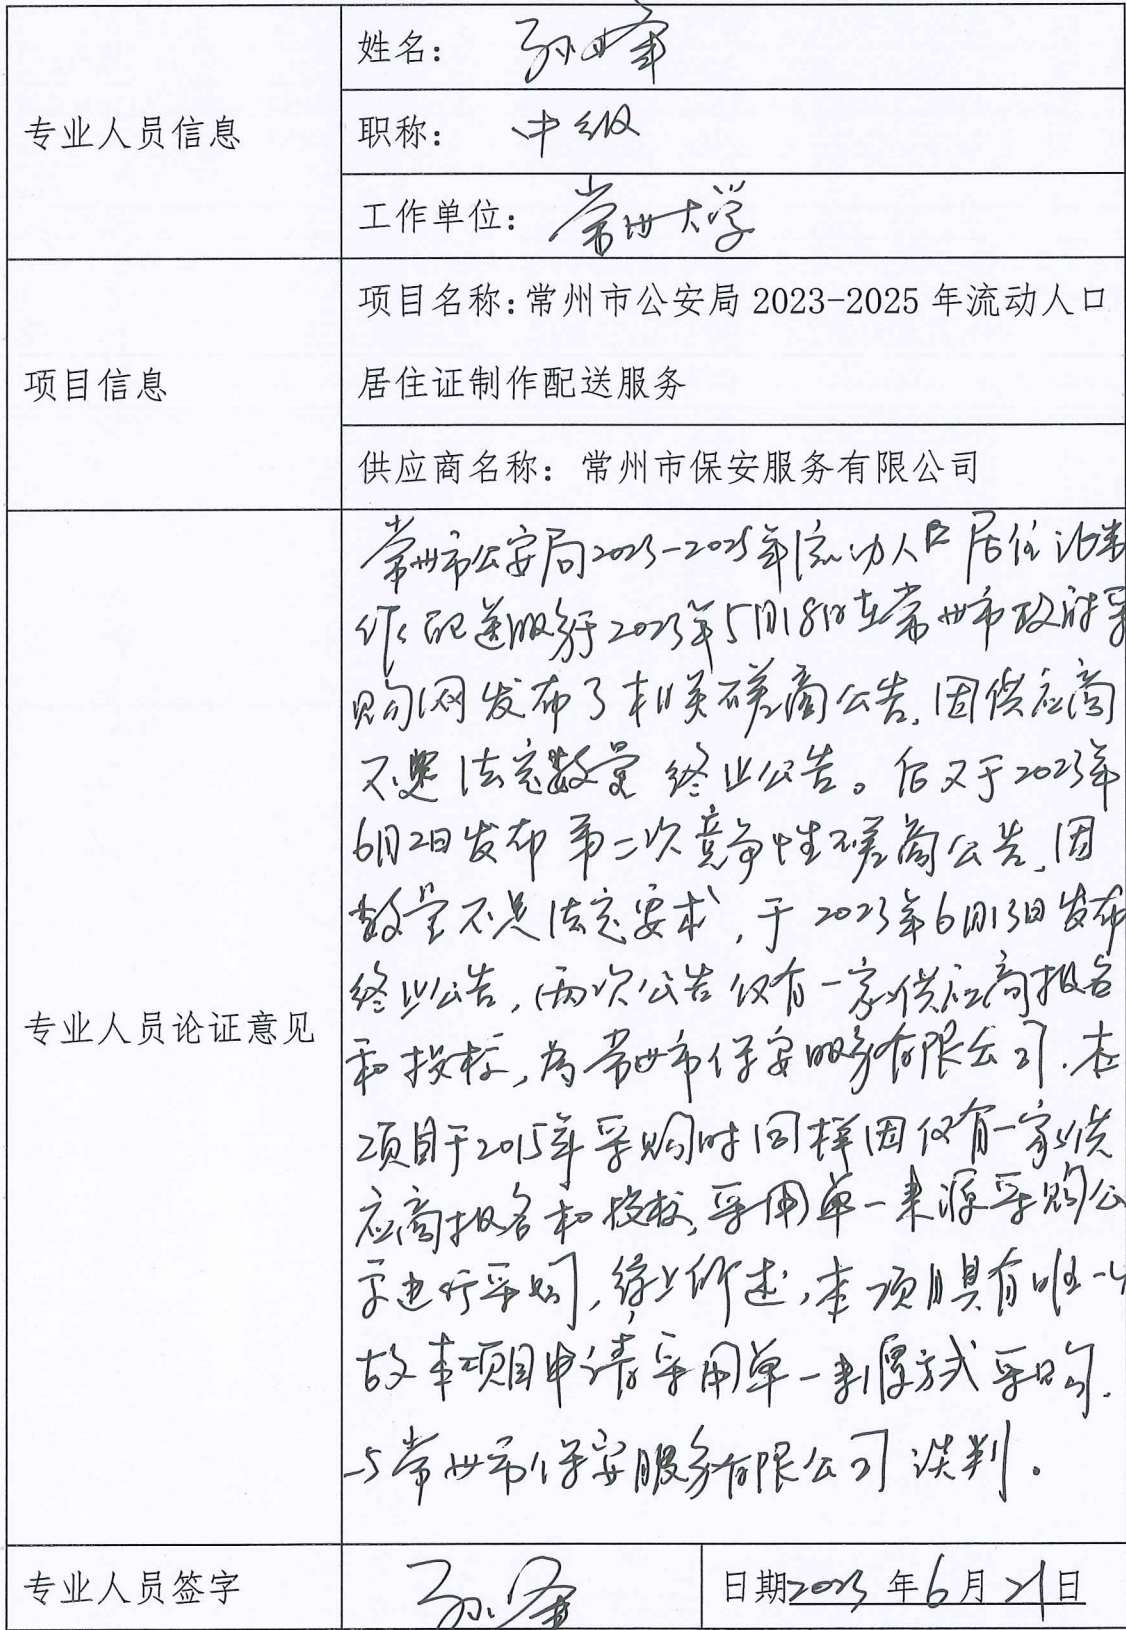 专业人员信息
姓名：孙峰
职称：中级
工作单位：常州大学
项目信息
项目名称：常州市公安局 2023-2025 年流动人口
居住证制作配送服务
供应商名称：常州市保安服务有限公司
专业人员论证意见
常州市公安局2023-2025年流动人口居住证制
作配送服务于2023年5月18日在常州市政府采
购网发布了相关磋商公告，因供应商
不足法定数量 终止公告。后又于2023年
6月2日发布第二次竞争性磋商公告，因
数量不足法定要求，于2023年6月13日发布
终止公告，两次公告仅有一家供应商报名
和投标，为常州市保安服务有限公司．本
项目于2015年采购时同样因仅有一家供
应商报名和投标，采用单一来源采购公
示进行采购，综上所述，本项目具有唯一
故本项目申请采用单一来源方式采购．
与常州市保安服务有限公司谈判。
专业人员签字
孙峰
日期2023年6月21日